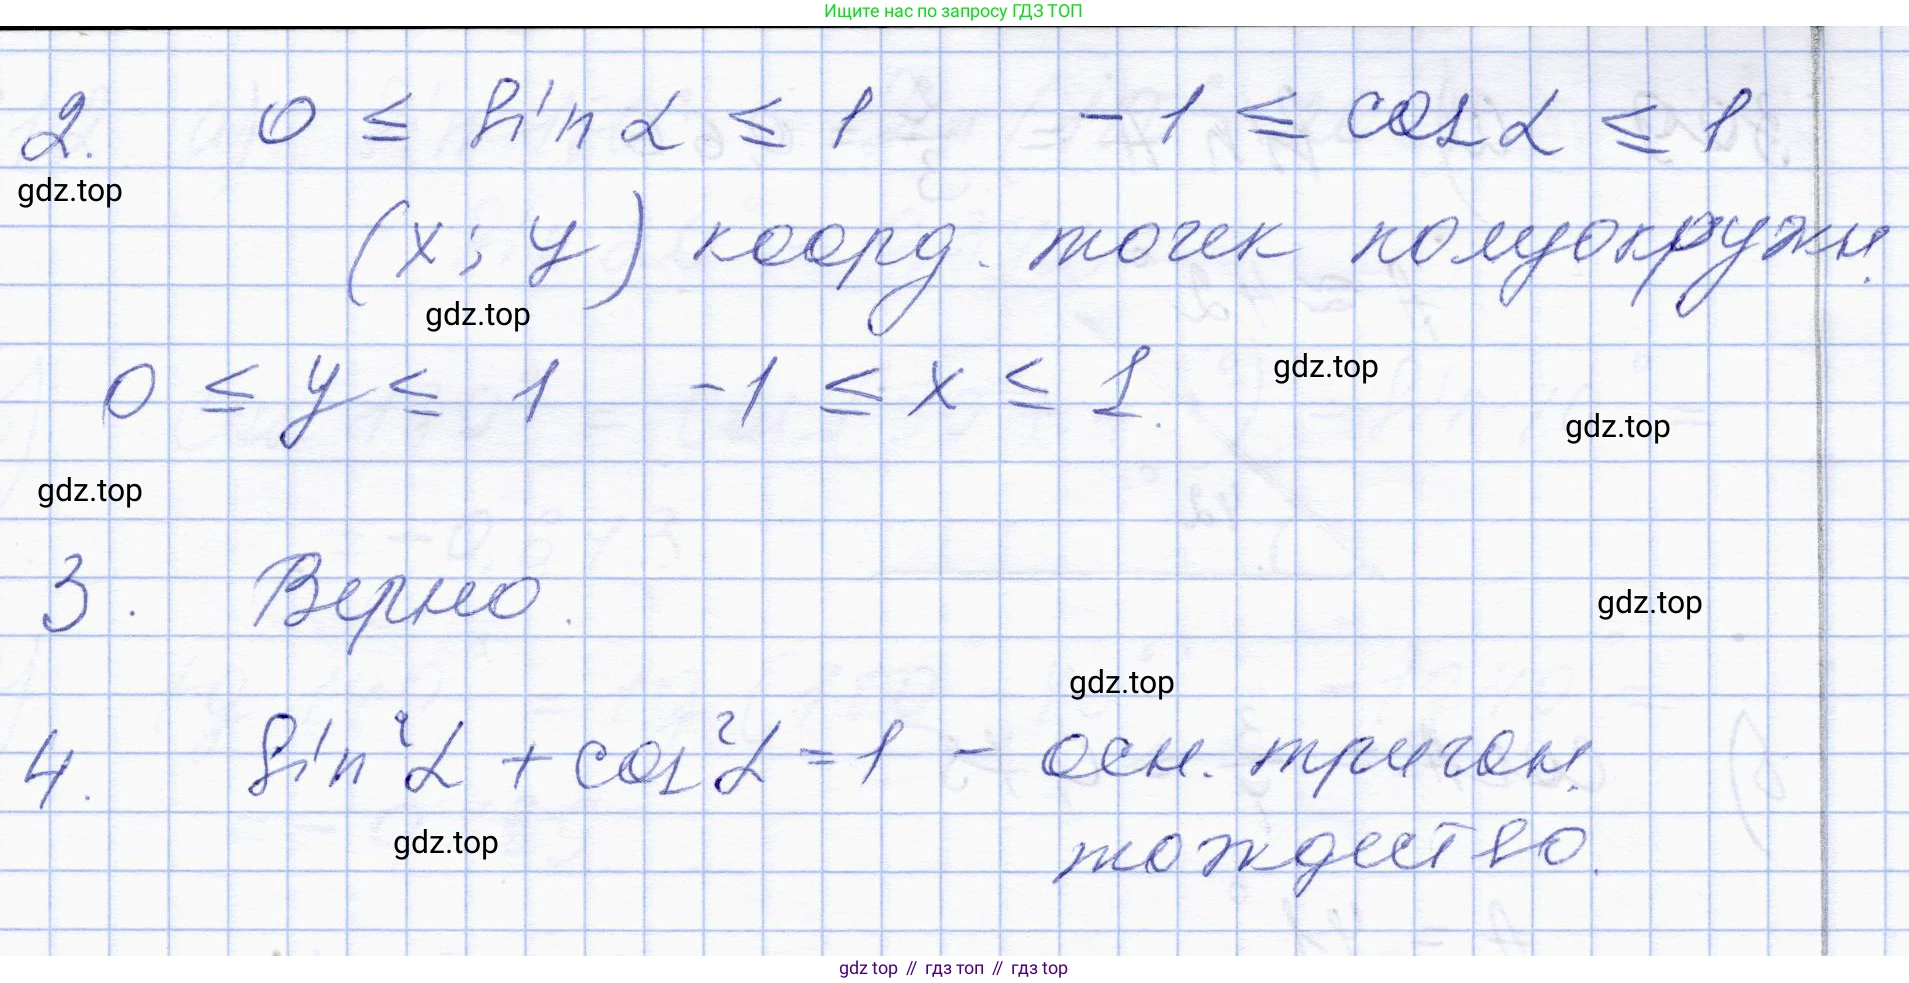 Ищите нас по запросу ГДЗ ТОП
2. 0 ≤ sin α ≤ 1 -1 ≤ cos α ≤ 1
gdz.top
(x; y) коорд. точек полуокружн.
gdz.top
0 ≤ y ≤ 1 -1 ≤ x ≤ 1.
gdz.top
gdz.top
gdz.top
3. Верно.
gdz.top
gdz.top
4. sin²α + cos²α = 1 - осн. тригон.
gdz.top
тождество.
gdz top // гдз топ // гдз top